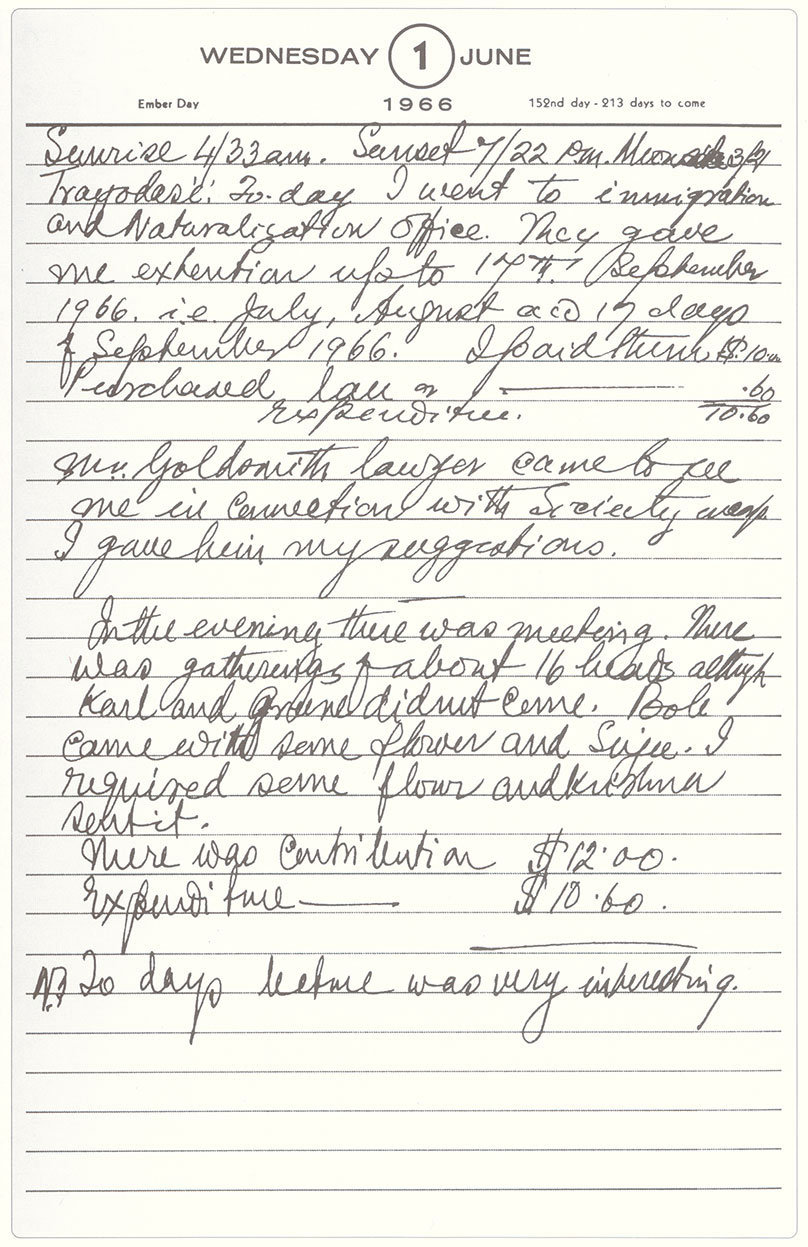 WEDNESDAY 1 JUNE
Ember Day 1966 152nd day - 213 days to come
Sunrise 4/33 am. Sunset 7/22 pm. Moon 3/21
Trayodasi. To-day I went to immigration
and Naturalization Office. They gave
me extention upto 17th September
1966. i.e. July, August and 17 days
of September 1966. I paid them $10.00
Purchased .60
Expenditure. 10.60
Mr. Goldsmith lawyer came to see
me in Connection with Society
I gave him my suggestions.
In the evening there was meeting. There
was gatherings of about 16 heads although
Karl and didnt come. Bob
came with some flower and Sujee. I
required some flour and Krishna
sent it.
There was contribution $12.00.
Expenditure $10.60.
N.B To days lecture was very interesting.